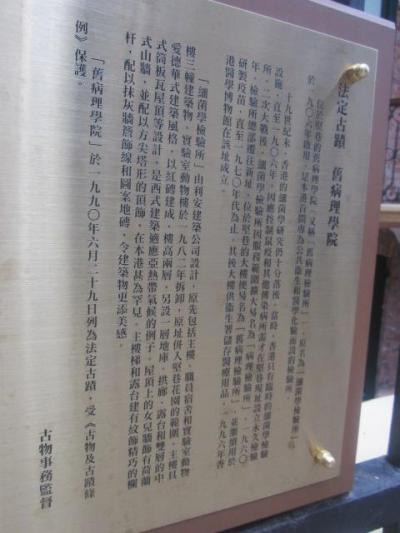 法定古蹟　舊病理學院
位於堅巷的舊病理學院，又稱「舊病理檢驗所」，原名為「細菌學檢驗所」，
於一九〇六年啟用，是本港首間專為公共衞生和醫學化驗而設的檢驗所。
十九世紀末，香港的細菌學研究仍十分落後。當時，香港只有臨時的細菌學檢驗
設施，直至一九〇六年，因應控制鼠疫和其他傳染病所需才在堅巷現址設立永久檢驗
所。二次大戰後，細菌學檢驗所因服務範圍擴大易名為「病理檢驗所」。一九六〇
年，檢驗所總部遷往新址，位於堅巷的大樓便易名為「舊病理檢驗所」，並繼續用於
研製疫苗，直至一九七〇年代為止。其後大樓供衞生署儲存醫療用品，一九九六年香
港醫學博物館在該址成立。
「細菌學檢驗所」由利安建築公司設計，原先包括主樓、職員宿舍和實驗室動物
樓三幢建築物。實驗室動物樓於一九八二年拆卸，原址併入堅巷花園的範圍。主樓具
愛德華式建築風格，以紅磚建成，樓高兩層，另設一層地庫。拱廊、露台和雙層的中
式筒板瓦屋頂等設計，是西式建築適應亞熱帶氣候的例子。屋頂上的女兒牆飾有荷蘭
式山牆，並配以方尖塔形的頂飾，在本港甚為罕見。主樓梯和露台建有紋飾精巧的欄
杆，配以抹灰牆簷飾線和圖案地磚，令建築物更添美感。
「舊病理學院」於一九九〇年六月二十九日列為法定古蹟，受《古物及古蹟條
例》保護。
古物事務監督